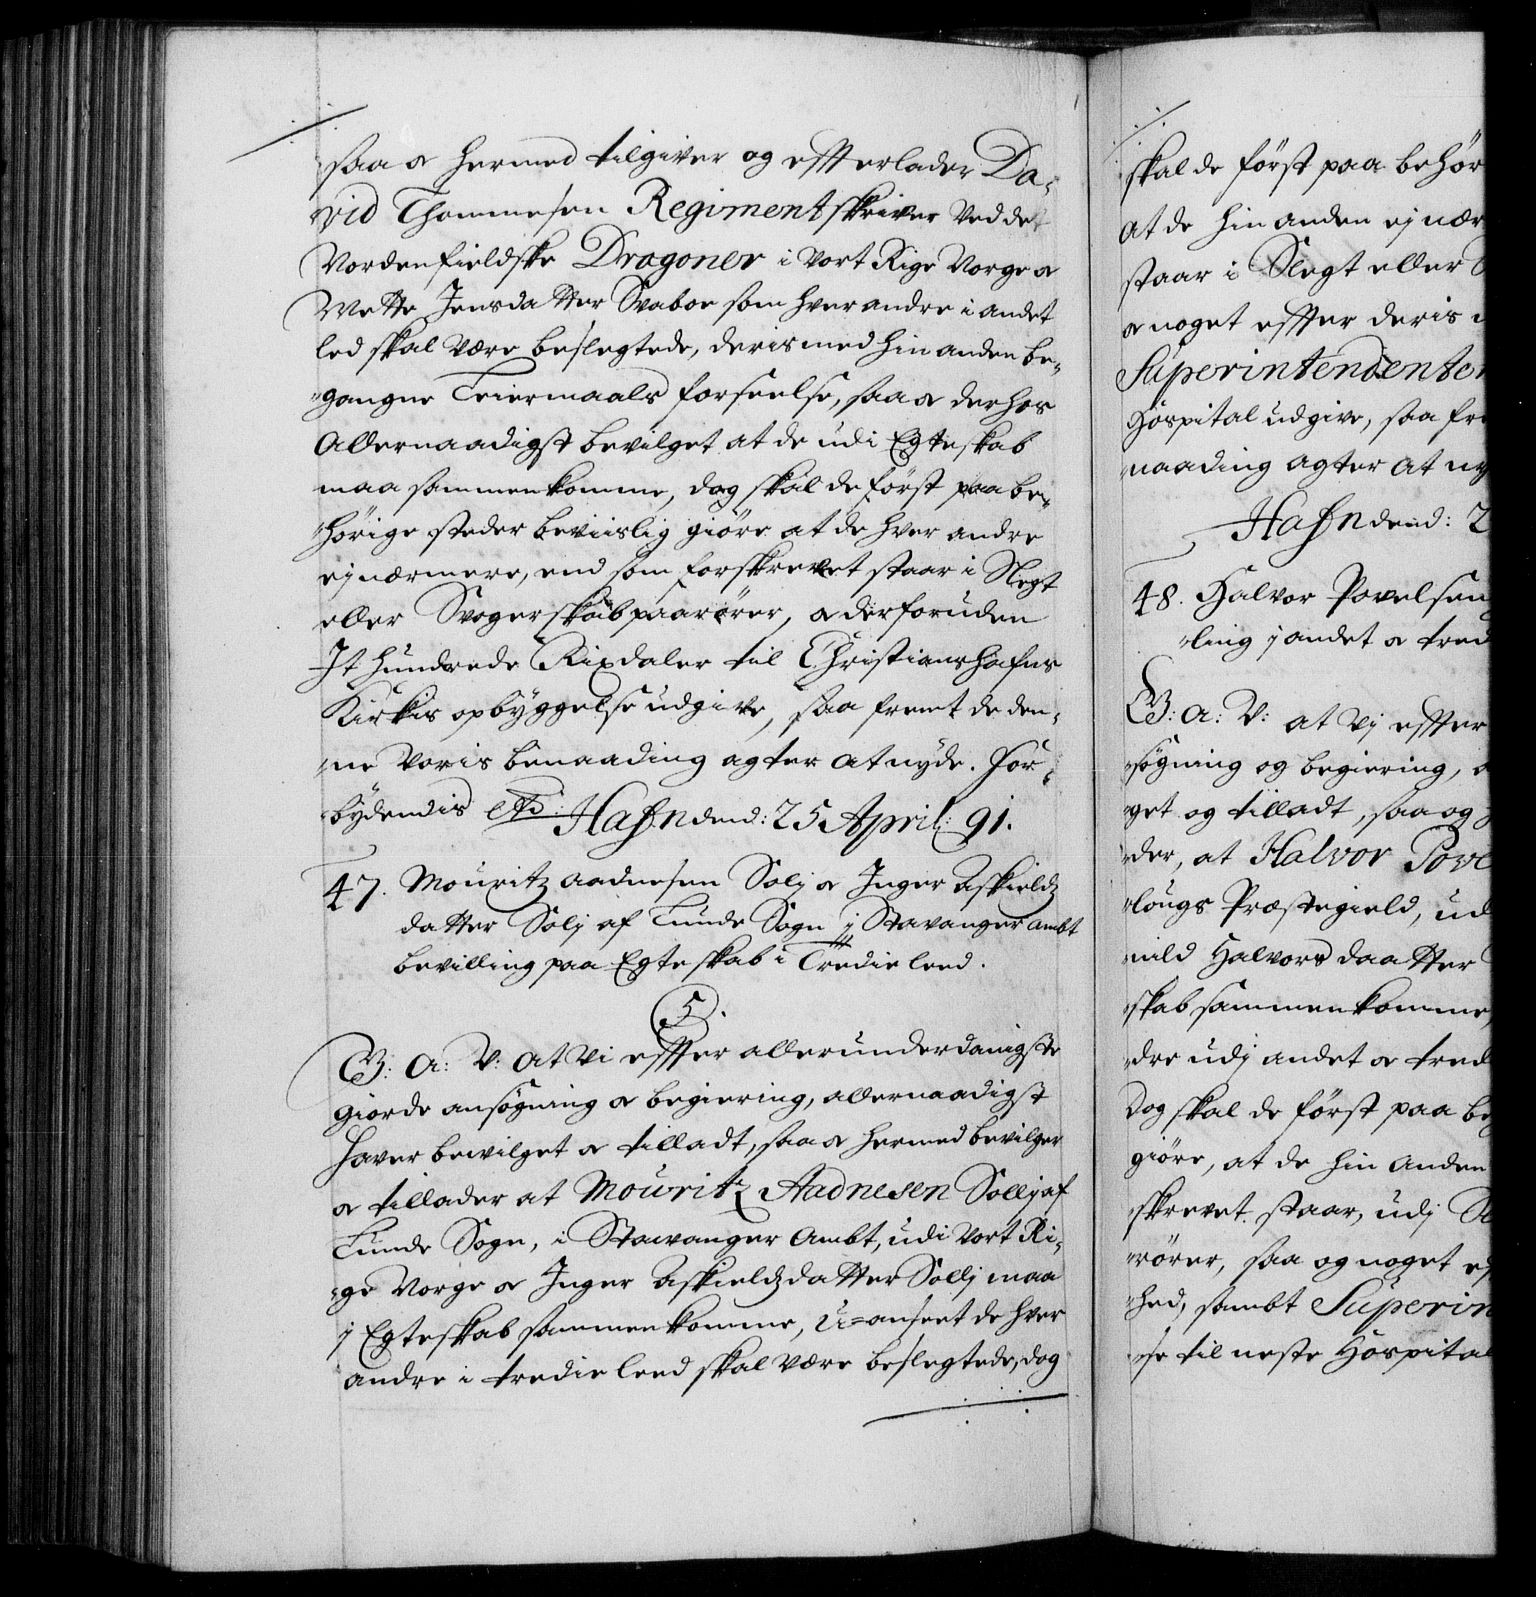 saa & hermed tilgiver og effterlader Da-
vid Thommesen Regimentskriver ved det
Nordenfieldske Dragoner i vort Rige Norge &
Mette Jensdatter Svaboe som hver andre i andet
led skal være beslegtede, deris med hin anden be-
gangne Leiermaals forseelse, saa & derhos
Allernaadigst bevilget at de udi Egteskab
maa sammenkomme, dog skal de först paa be-
hörige steder beviislig giöre at de hver andre
ej nærmere, end som forskrevet staar i Slegt
eller Svogerskab paarörer, & derforuden
It hundrede Rixdaler til Christianshafns
Kirkis opbyggelse udgive, saa fremt de den-
ne voris benaading agter at nyde. For-
bydendis etc: Hafn dend: 25 April: 91.
47. Mouritz Aadnesen Solj & Inger Askieldz
datter Solj af Lunde Sogn j Stavanger ambt
bevilling paa Egteskab i Tredie leed.
5.
G: A: V: at vi effter allerunderdanigste
giorde ansögning & begiering, allernaadigst
haver bewilget & tilladt, saa & hermed bevilger
& tillader at Mouritz Aadnesen Sollj af
Lunde Sogn, i Stavanger Ambt, udi vort Ri-
ge Norge & Inger Askieldzdatter Sollj maa
j Egteskab sammenkomme, u-anseet de hver
andre i tredie leed skal være beslegtede, dog
skal de först paa behör
at de hin anden ej nær
staar i Slegt eller
& noget effter deris
Superintendenten
Hospital udgive, saa fre
naading agter at ny
Hafn dend: 2
48. Halvor Povelsen
ling j andet & tred
G: A: V: at vj effter
sögning og begiering,
get og tilladt, saa og
der, at Halvor Povl
lougs Præstegield, ud
nild Halvors daatter
skab sammenkomme,
dre udj andet & tred
Dog skal de först paa be
giöre, at de hin anden
skrevet staar, udj
rörer, saa og noget ef
hed, sambt Superin
se til neste Hospital